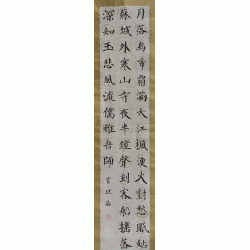 月落烏啼霜滿天江楓漁火對愁眠姑
蘇城外寒山寺夜半鐘聲到客船搖落
深知玉悲風流儒雅吾師